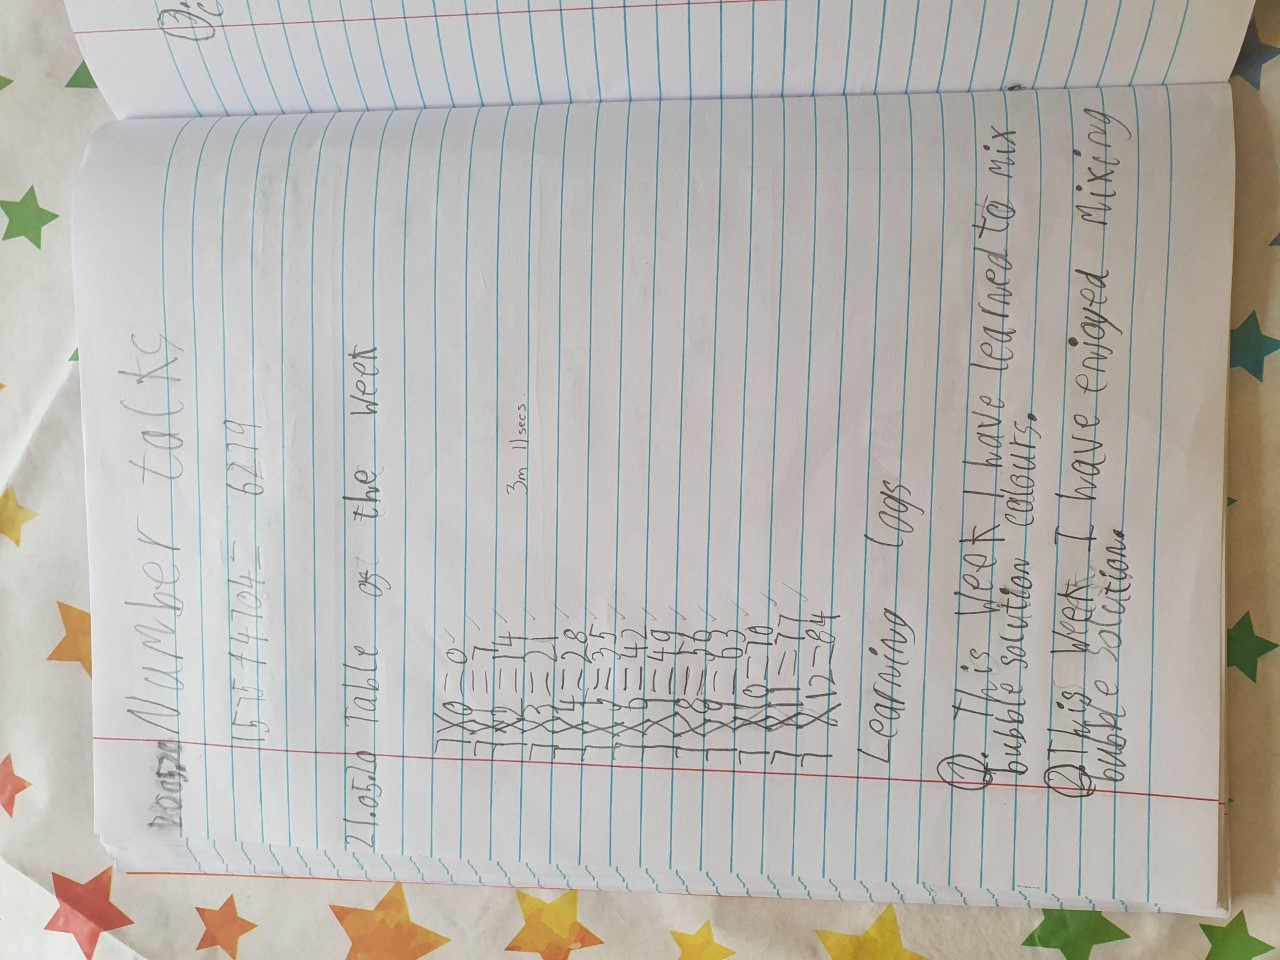 Number talks
1575+4704= 6279
21.05.20 Table of the week
7X0=0 ✓
7X1=7 ✓
7X2=14 ✓ 3m 11secs.
7X3=21 ✓
7X4=28 ✓
7X5=35 ✓
7X6=42 ✓
7X7=49 ✓
7X8=56 ✓
7X9=63 ✓
7X10=70 ✓
7X11=77 ✓
7X12=84 ✓
Learning logs
①. This week I have learned to mix
bubble solution colours.
② This week I have enjoyed mixing
bubble solution.